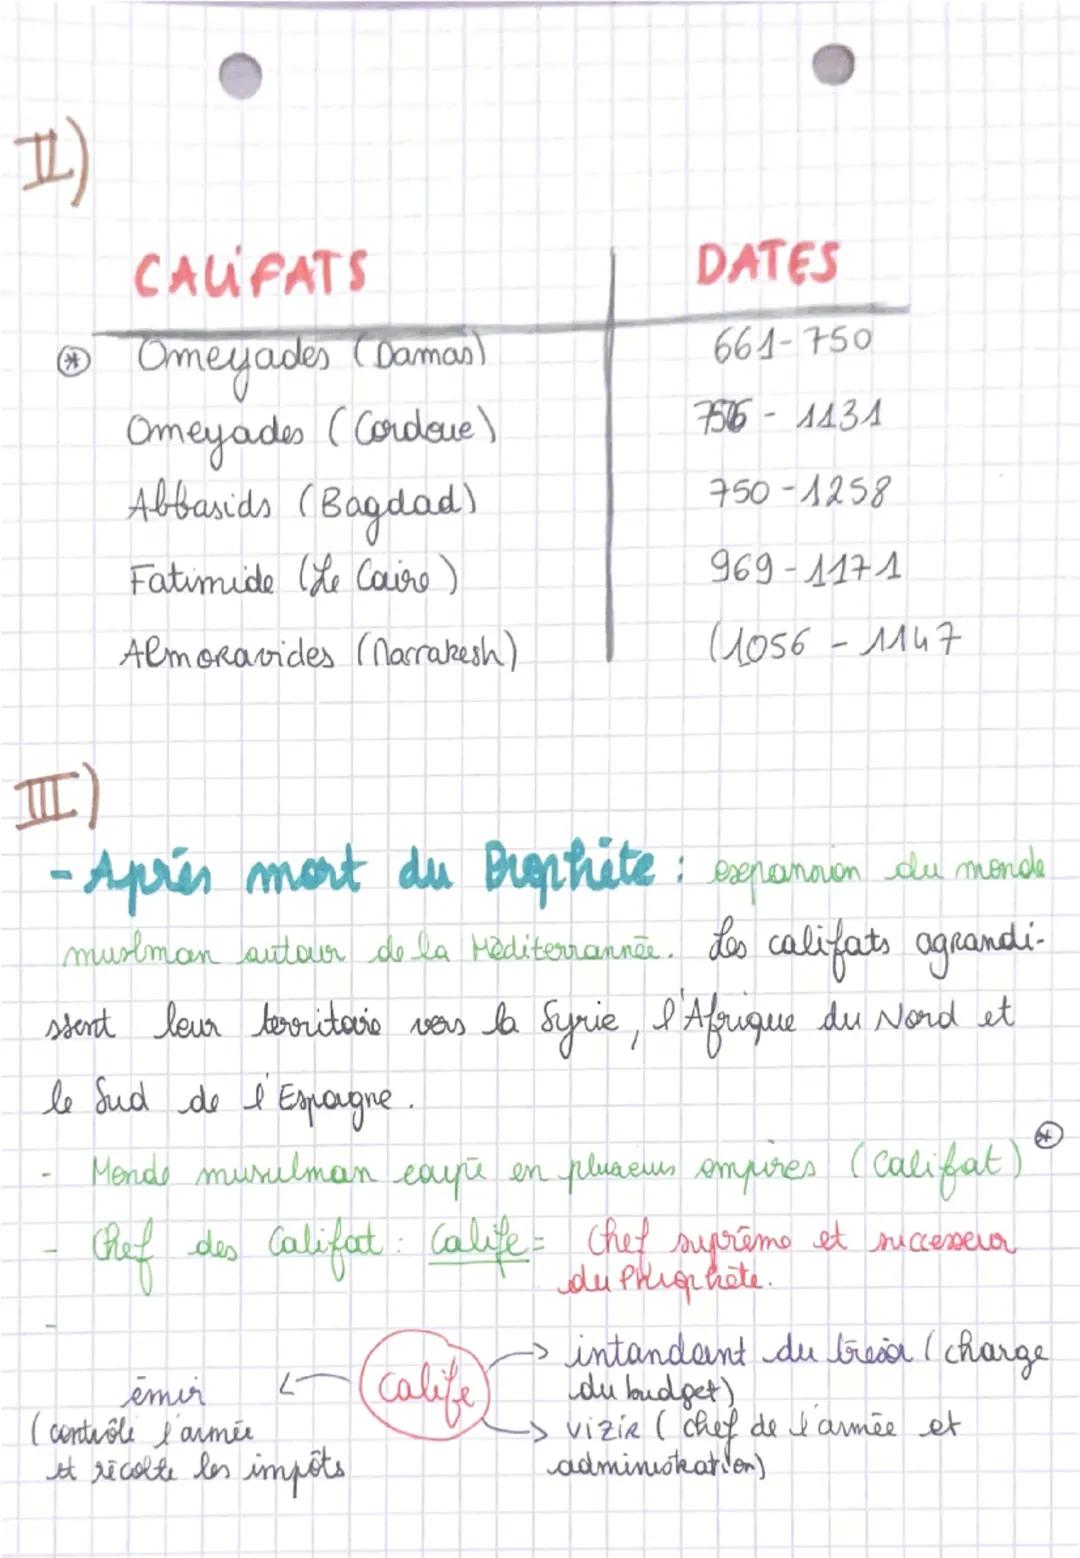 II)
CALiFATS DATES
* Omeyades (Damas) 661-750
Omeyades (Cordoue) 756 - 1131
Abbasids (Bagdad) 750-1258
Fatimide (Le Caire) 969-1171
Almoravides (Marrakesh) (1056 - 1147
III)
- Après mort du Prophète : expansion du monde
muslman autour de la Méditerrannée. Les califats agrandi-
ssent leur territoire vers la Syrie, l'Afrique du Nord et
le Sud de l'Espagne.
- Monde musulman coupé en plusieurs empires (Califat) *
- Chef des Califat : Calife = Chef suprême et successeur
du Prophète.
-
intandant du trésor (charge
du budget)
émir Calife
(contrôle l'armée vizir (chef de l'armée et
et récolte les impôts administration)